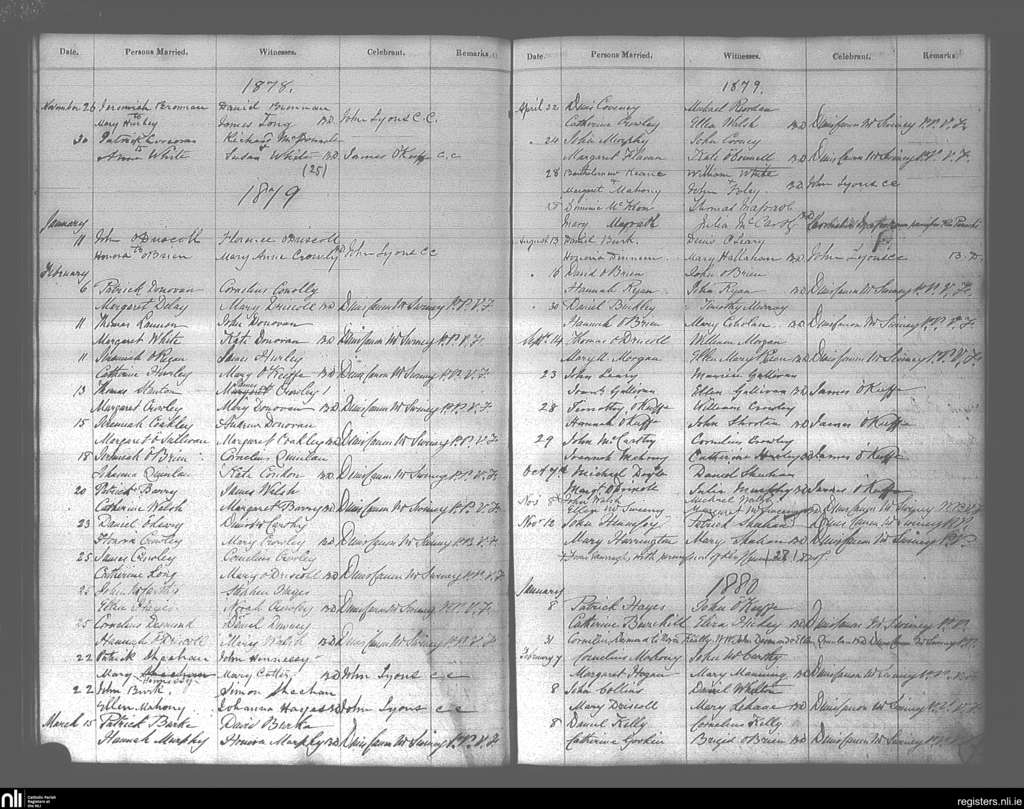 Date. Persons Married. Witnesses. Celebrant. Remarks.
1878.
November 26 Jeremiah Brennan Daniel Brennan
to Mary Hurley James Long B.D John Lyons C.C.
30 Patrick Corcoran Richard
to Anna White Susan White B.D James O'Keeffe C.C
(25)
1879
January
11 John O'Driscoll Florence O'Driscoll
to Honora O'Brien Mary Anne Crowley B.D John Lyons CC
February
6 Patrick Donovan Cornelius Conolly
Margaret Daly Mary Driscoll B.D Denis Canon McSwiney P.P. V.F
11 Thomas Lannon John Donovan
Margaret White Kate Donovan B.D Denis Canon McSwiney P.P. V.F.
11 Jeremiah O'Regan James Hurley
Catherine Hurley Mary O'Keeffe B.D Denis Canon McSwiney P.P. V.F.
13 Thomas Stanton Crowley
Margaret Crowley Mary Donovan B.D Denis Canon McSwiney P.P. V.F
15 Jeremiah Coakley Andrew Donovan
Margaret O'Sullivan Margaret Coakley B.D Denis Canon McSwiney P.P. V.F.
18 Jeremiah O'Brien Cornelius Quinlan
Johanna Quinlan Kate Condon B.D Denis Canon McSwiney P.P. V.F
20 Patrick Barry James Welsh
Catherine Walsh Margaret Barry B.D Denis Canon McSwiney P.P. V.F.
23 Daniel O'Leary David McCarthy
Honora Crowley Mary Crowley B.D Denis Canon McSwiney P.P. V.F.
25 James Crowley Cornelius Crowley
Catherine Long Mary O'Driscoll B.D Denis Canon McSwiney P.P. V.F
25 John McCarthy Stephen Hayes
Ellen Hayes Norah Crowley B.D Denis Canon McSwiney P.P. V.F.
25 Cornelius Desmond Daniel
Hannah O'Driscoll Walsh B.D Denis Canon McSwiney P.P. V.F
22 Patrick Sheehan John Hennessy
Mary Hennessy Mary Cotter B.D John Lyons c c
22 John Burk. Simon Sheehan
Ellen Mahony Johanna Hayes B.D John Lyons c c
March 15 Patrick Burke David Burke
Hannah Murphy Honora Murphy B.D Denis Canon McSwiney P.P. V.F
Date. Persons Married. Witnesses. Celebrant. Remarks.
1879.
April 22 Denis Coveney Michael Riordan
Catherine Crowley Ellen Welsh B.D Denis Canon McSwiney P.P. V.F.
24 John Murphy John Cooney
Margaret Kate O'Connell B.D Denis Canon McSwiney P.P. V.F.
28 Bartholomew Keane William White
Margaret Mahony John Foley B.D John Lyons cc
15 Dominic Thomas Magrath
Mary Magrath Julia McCarthy B.D
August 13 Daniel Burk. Denis O'Leary
Honora Mary Hallahan B.D John Lyons cc
16 David O'Brien John O'Brien
Hannah Ryan John Ryan B.D Denis Canon McSwiney P.P. V.F.
30 Daniel Buckley Timothy Murray
Hannah O'Brien Mary B.D Denis Canon McSwiney P.P. V.F.
Septr. 14 Thomas O'Driscoll William Morgan
Mary A Morgan Ellen Mary B.D Denis Canon McSwiney P.P. V.F.
23 John Leary Maurice Gallivan
Joana Gallivan Ellen Gallivan B.D James O'Keeffe
28 Timothy O'Keeffe William Crowley
Hannah O'Keeffe John B.D James O'Keeffe
29 John McCarthy Cornelius Crowley
Joannah Mahony Catherine Hurley B.D James O'Keeffe
Oct 7th Michael Doyle Daniel Sheehan
Margt O'Driscoll Julia Murphy B.D James O'Keeffe
Nov 8 John Walsh Michael Walsh
Ellen McSweeny Margaret McSweeney B.D Denis Canon McSwiney P.P. V.F
Nov. 12 John Patrick Sheehan Denis Canon McSwiney P.P.
Mary Harrington Mary Sheehan B.D Denis Canon McSwiney P.P.
(28)
1880
January
8 Patrick Hayes John O'Keeffe
Catherine Burchill Eliza Hickey B.D Denis Canon McSwiney P.P.
31 Cornelius B.D Denis Canon McSwiney P.P.
February 7 Cornelius Mahony John McCarthy
Margaret Hogan Mary Manning B.D Denis Canon McSwiney P.P. V.F.
8 John Collins Daniel Whelton
Mary Driscoll Mary B.D Denis Canon McSwiney P.P. V.F.
8 Daniel Kelly Cornelius Kelly
Catherine Brigid O'Brien B.D Denis Canon McSwiney P.P.
nli Catholic Parish Registers at the NLI
registers.nli.ie